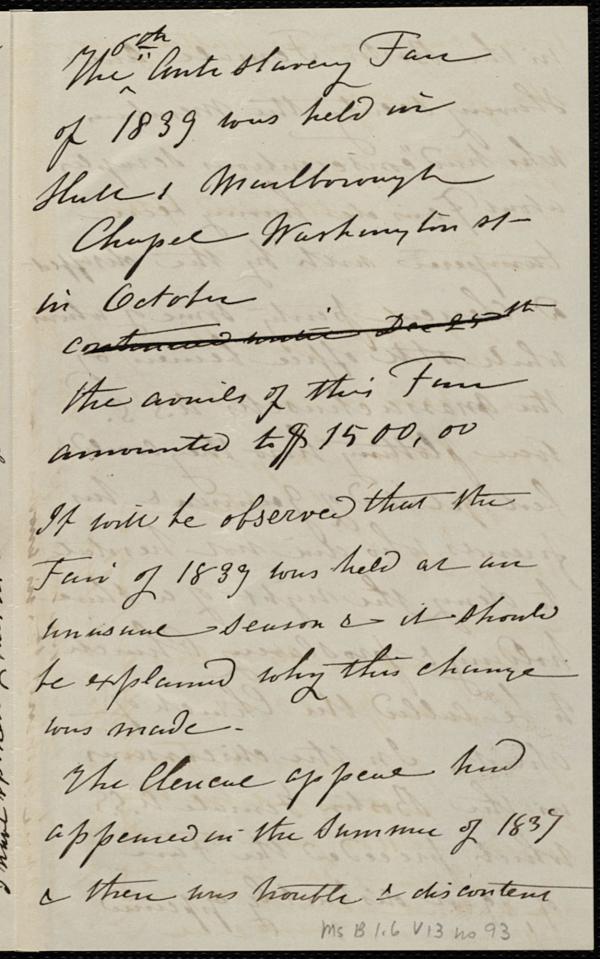 6th
The Anti Slavery Fair
of 1839 was held in
Hall 1 Marlborough
Chapel Washington st
in October
continued until Dec 25th
the avails of this Fair
amounted to $1500,00
It will be observed that the
Fair of 1839 was held at an
unusual season & it should
be explained why this change
was made -
The Clerical appeal had
appeared in the Summer of 1837
& there was trouble & discontent
Ms B 1.6 V13 no 93